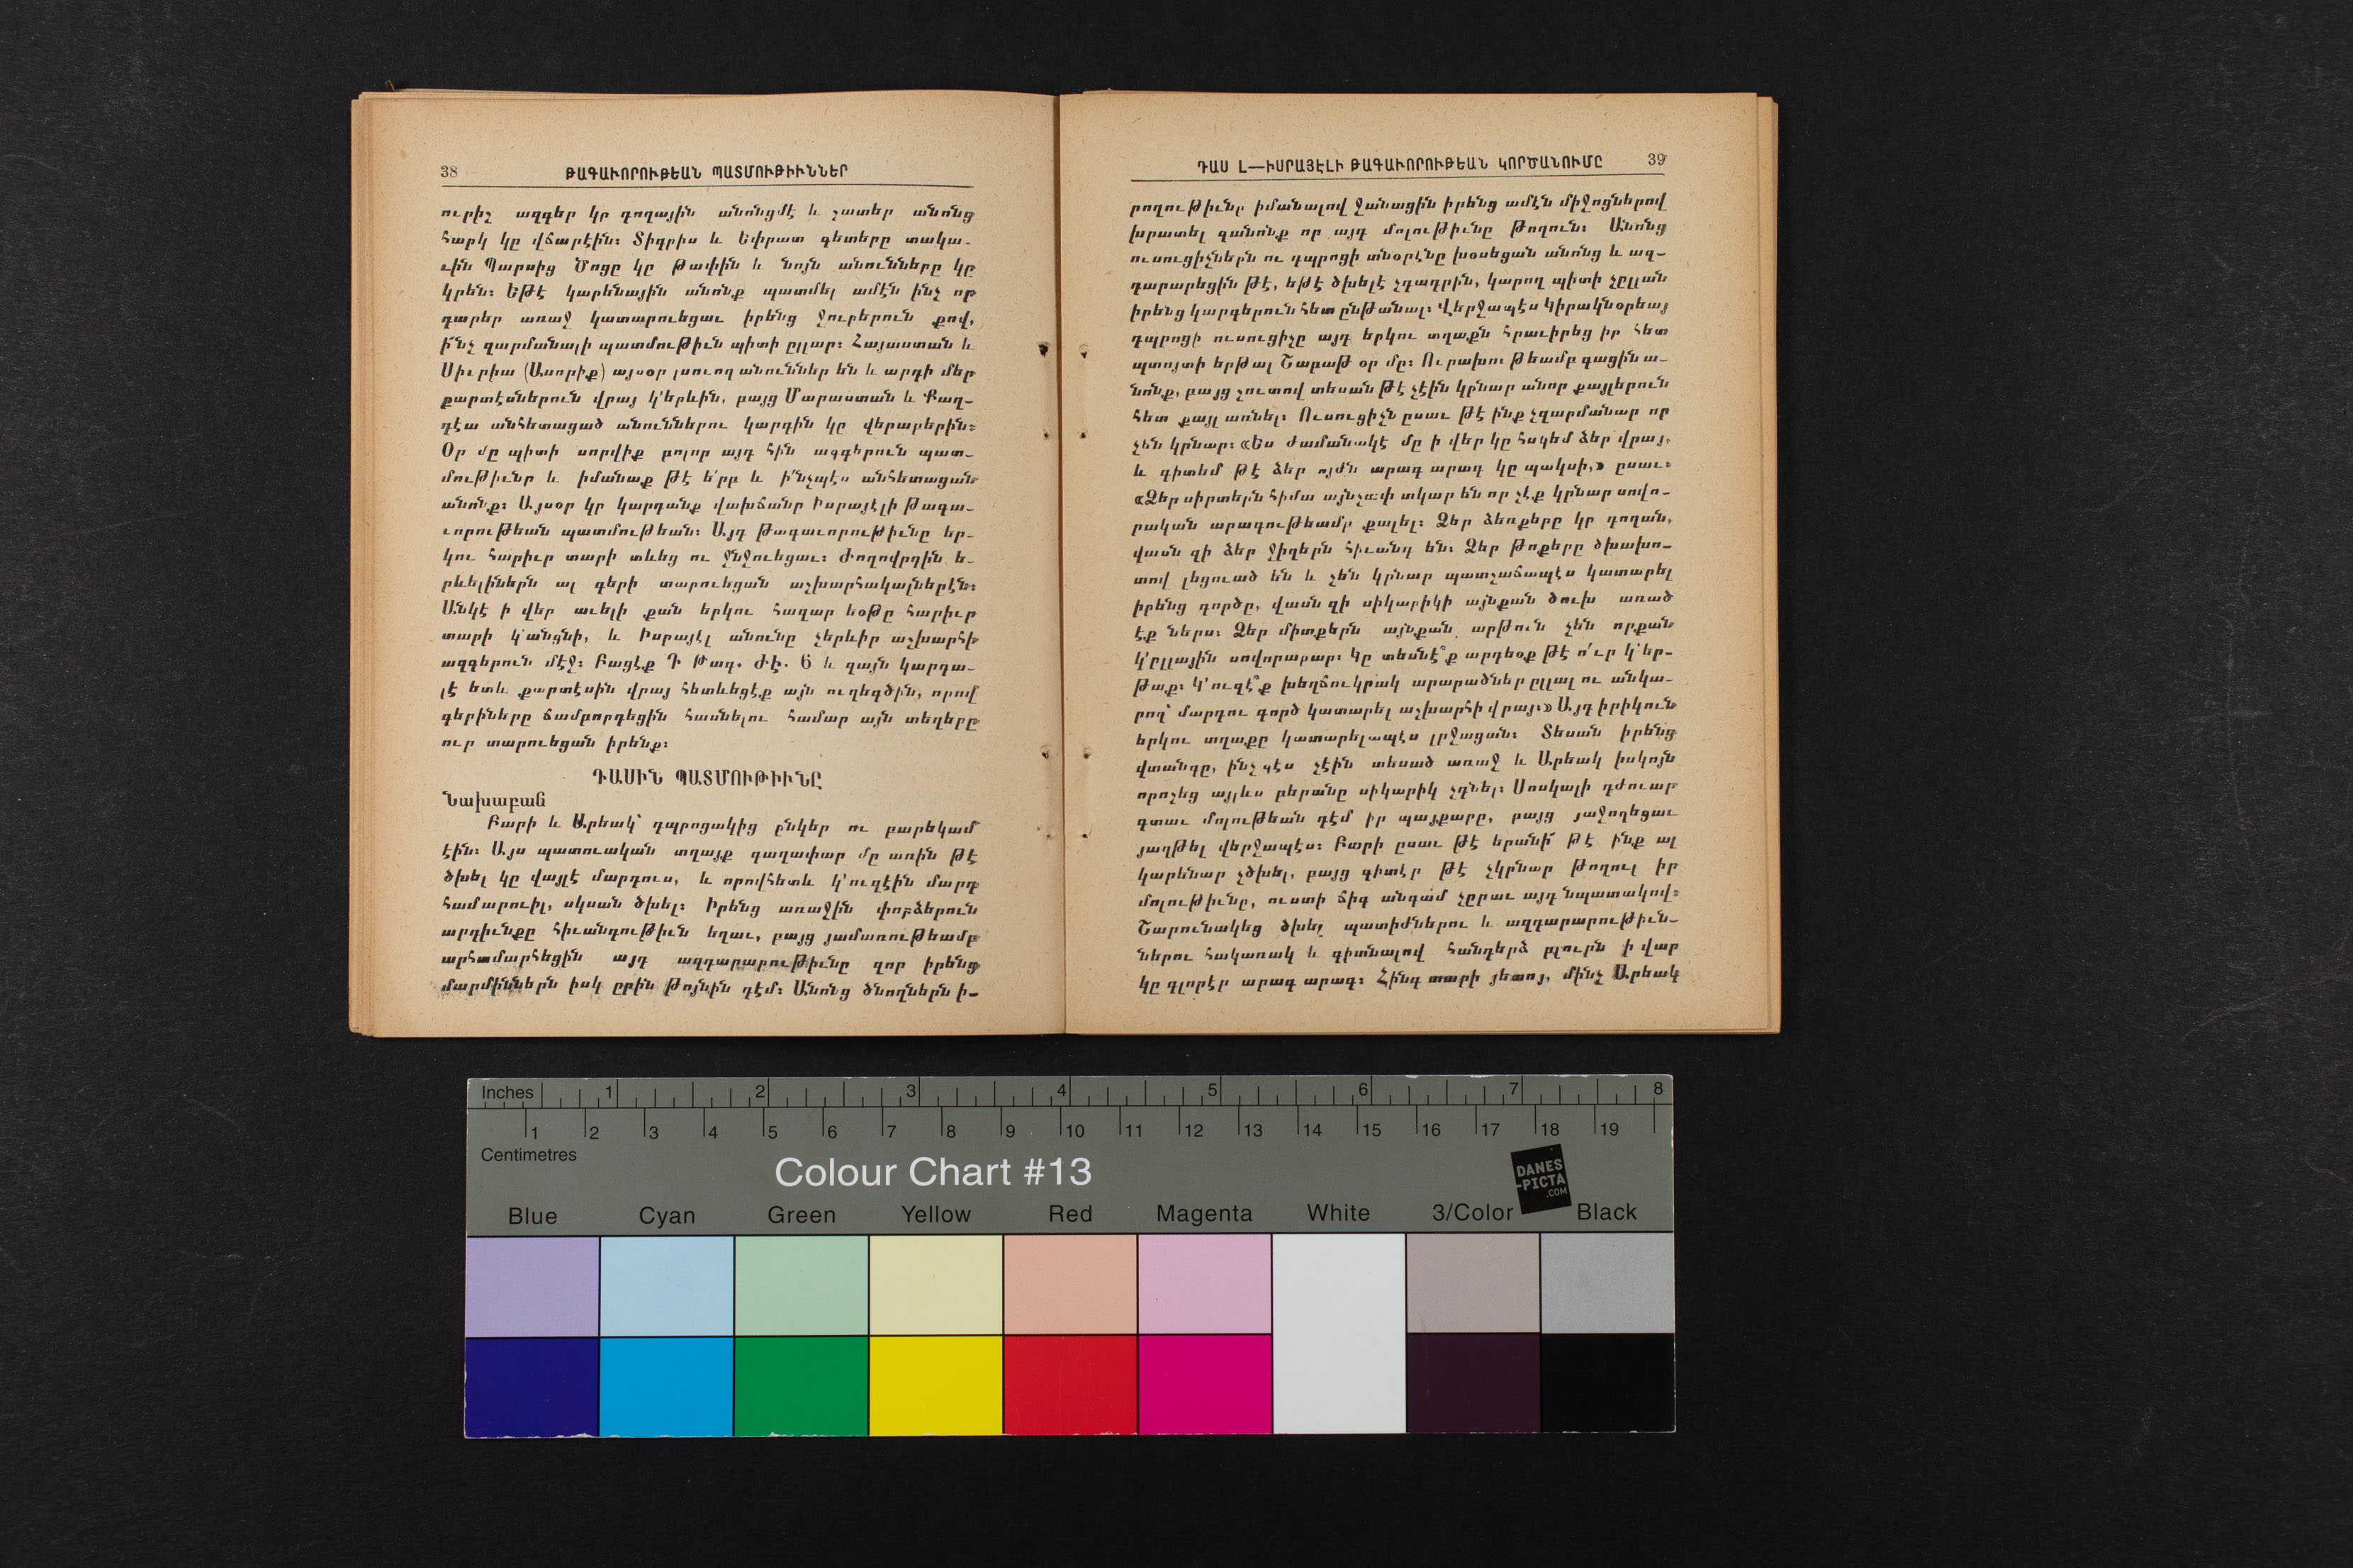 38 ԹԱԳԱՒՈՐՈՒԹԵԱՆ ՊԱՏՄՈՒԹԻՒՆՆԵՐ
ուրիշ ազգեր կը դողային անոնցմէ և շատեր անոնց
հարկ կը վճարէին։ Տիգրիս և Եփրատ գետերը տակա-
ւին Պարսից Ծոցը կը թափին և նոյն անունները կը
կրեն։ Եթէ կարենային անոնք պատմել ամէն ինչ որ
դարեր առաջ կատարուեցաւ իրենց ջուրերուն քով,
ի՜նչ զարմանալի պատմութիւն պիտի ըլլար։ Հայաստան և
Սիւրիա (Ասորիք) այսօր լսուող անուններ են և արդի մեր
քարտէսներուն վրայ կ'երևին, բայց Մարաստան և Քաղ-
դէա անհետացած անուններու կարգին կը վերաբերին։
Օր մը պիտի սորվիք բոլոր այդ հին ազգերուն պատ-
մութիւնը և իմանաք թէ ե՛րբ և ի՛նչպէս անհետացան
անոնք։ Այսօր կը կարդանք վախճանը Իսրայէլի թագա-
ւորութեան պատմութեան։ Այդ թագաւորութիւնը եր-
կու հարիւր տարի տևեց ու ջնջուեցաւ։ Ժողովրդին ե-
րևելիներն ալ գերի տարուեցան աշխարհակալներէն։
Անկէ ի վեր աւելի քան երկու հազար եօթը հարիւր
տարի կ'անցնի, և Իսրայէլ անունը չերևիր աշխարհի
ազգերուն մէջ։ Բացէք Դ Թագ. ԺԷ. 6 և զայն կարդա-
լէ ետև քարտէսին վրայ հետևեցէք այն ուղեգծին, որով
գերիները ճամբորդեցին հասնելու համար այն տեղերը
ուր տարուեցան իրենք։
ԴԱՍԻՆ ՊԱՏՄՈՒԹԻՒՆԸ
Նախաբան
Բարի և Արեակ՝ դպրոցակից ընկեր ու բարեկամ
էին։ Այս պատուական տղայք գաղափար մը առին թէ
ծխել կը վայլէ մարդուս, և որովհետև կ'ուզէին մարդ
համարուիլ, սկսան ծխել։ Իրենց առաջին փորձերուն
արդիւնքը հիւանդութիւն եղաւ, բայց յամառութեամբ
արհամարհեցին այդ ազդարարութիւնը զոր իրենց
մարմիններն իսկ ըրին թոյնին դէմ։ Անոնց ծնողներն ի-
ԴԱՍ Լ—ԻՍՐԱՅԷԼԻ ԹԱԳԱՒՈՐՈՒԹԵԱՆ ԿՈՐԾԱՆՈՒՄԸ 39
րողութիւնը իմանալով ջանացին իրենց ամէն միջոցներով
խրատել զանոնք որ այդ մոլութիւնը թողուն։ Անոնց
ուսուցիչներն ու դպրոցի տնօրէնը խօսեցան անոնց և ազ-
դարարեցին թէ, եթէ ծխելէ չդադրին, կարող պիտի չըլլան
իրենց կարգերուն հետ ընթանալ։ Վերջապէս Կիրակնօրեայ
դպրոցի ուսուցիչը այդ երկու տղաքն հրաւիրեց իր հետ
պտոյտի երթալ Շաբաթ օր մը։ Ուրախութեամբ գացին ա-
նոնք, բայց շուտով տեսան թէ չէին կրնար անոր քայլերուն
հետ քայլ առնել։ Ուսուցիչն ըսաւ թէ ինք չզարմանար որ
չեն կրնար։ «Ես ժամանակէ մը ի վեր կը հսկեմ ձեր վրայ,
և գիտեմ թէ ձեր ոյժն արագ արագ կը պակսի,» ըսաւ։
«Ձեր սիրտերն հիմա այնչափ տկար են որ չէք կրնար սովո-
րական արագութեամբ քալել։ Ձեր ձեռքերը կը դողան,
վասն զի ձեր ջիղերն հիւանդ են։ Ձեր թոքերը ծխախո-
տով լեցուած են և չեն կրնար պատշաճապէս կատարել
իրենց գործը, վասն զի սիկարիկի այնքան ծուխ առած
էք ներս։ Ձեր միտքերն այնքան արթուն չեն որքան
կ'ըլլային սովորաբար։ Կը տեսնէ՞ք արդեօք թէ ո՛ւր կ'եր-
թաք։ Կ'ուզէ՞ք խեղճուկրակ արարածներ ըլլալ ու անկա-
րող՝ մարդու գործ կատարել աշխարհի վրայ։» Այդ իրիկուն
երկու տղաքը կատարելապէս լրջացան։ Տեսան իրենց
վտանգը, ինչպէս չէին տեսած առաջ և Արեակ իսկոյն
որոշեց այլևս բերանը սիկարիկ չդնել։ Սոսկալի դժուար
գտաւ մոլութեան դէմ իր պայքարը, բայց յաջողեցաւ
յաղթել վերջապէս։ Բարի ըսաւ թէ երանի՜ թէ ինք ալ
կարենար չծխել, բայց գիտէր թէ չկրնար թողուլ իր
մոլութիւնը, ուստի ճիգ անգամ չըրաւ այդ նպատակով։
Շարունակեց ծխել պատիժներու և ազդարարութիւն-
ներու հակառակ և գիտնալով հանդերձ բլուրն ի վար
կը գլորէր արագ արագ։ Հինգ տարի յետոյ, մինչ Արեակ
Inches 1 2 3 4 5 6 7 8
1 2 3 4 5 6 7 8 9 10 11 12 13 14 15 16 17 18 19
Centimetres
Colour Chart #13
DANES
-PICTA
.COM
Blue Cyan Green Yellow Red Magenta White 3/Color Black